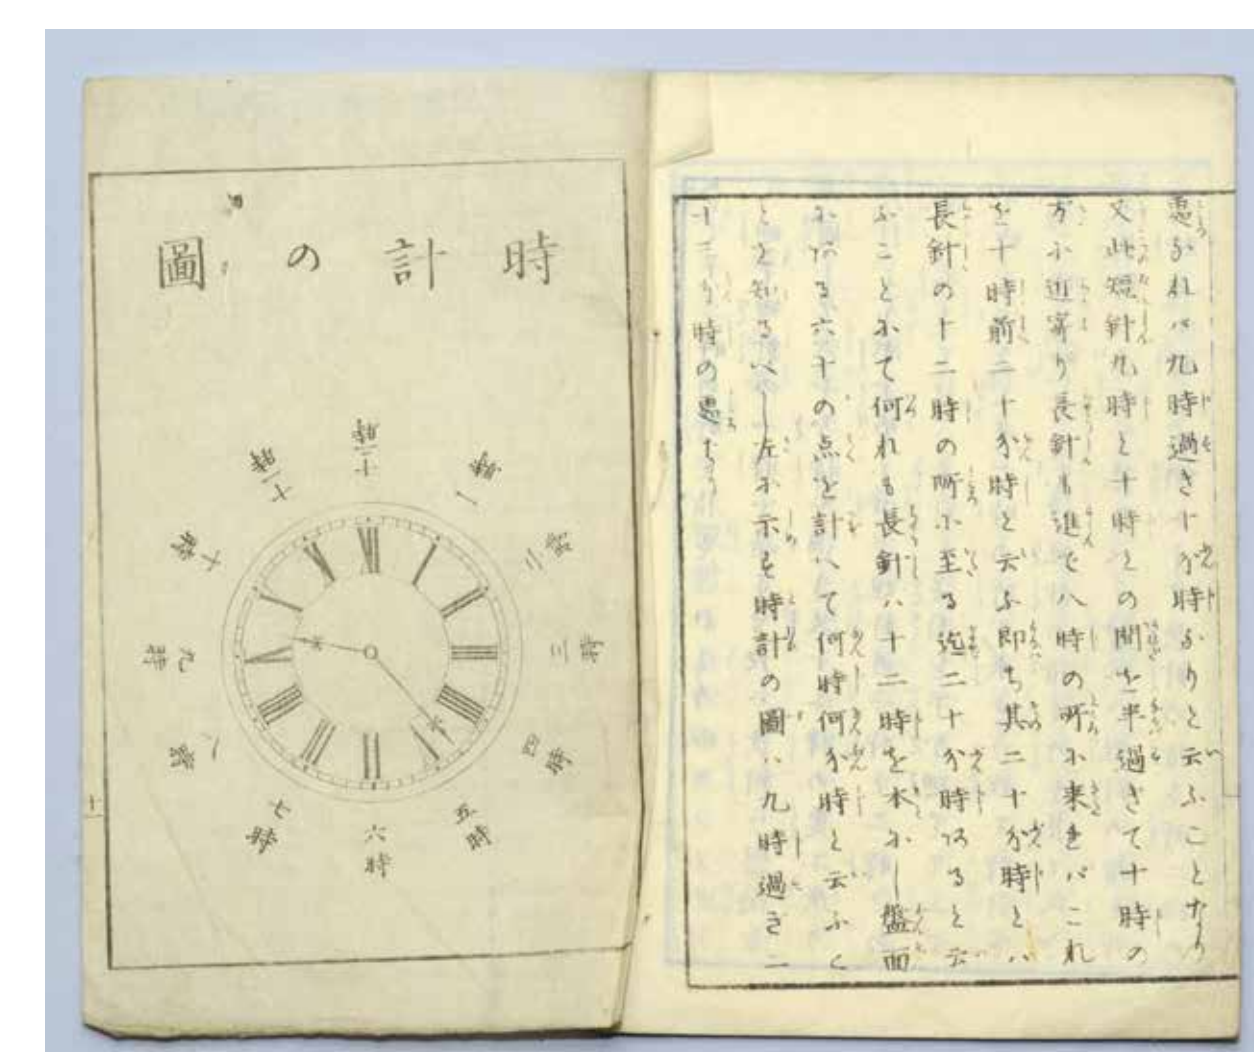 處なれバ九時過き十分時なりと云ふことなり
又此短針九時と十時との間を半過ぎて十時の
方に近寄り長針も進で八時の所に来れバこれ
を十時前二十分時と云ふ即ち其二十分時とハ
長針の十二時の所に至る迄二十分時あると云
ふことにて何れも長針ハ十二時を本にし盤面
にある六十の点を計へて何時何分時と云ふこ
とを知るべし左に示す時計の圖ハ九時過ぎ二
十三分時の處なり
時計の圖
十二時
一時
二時
三時
四時
五時
六時
七時
八時
九時
十時
十一時
XII
I
II
III
IIII
V
VI
VII
VIII
IX
X
XI
十一